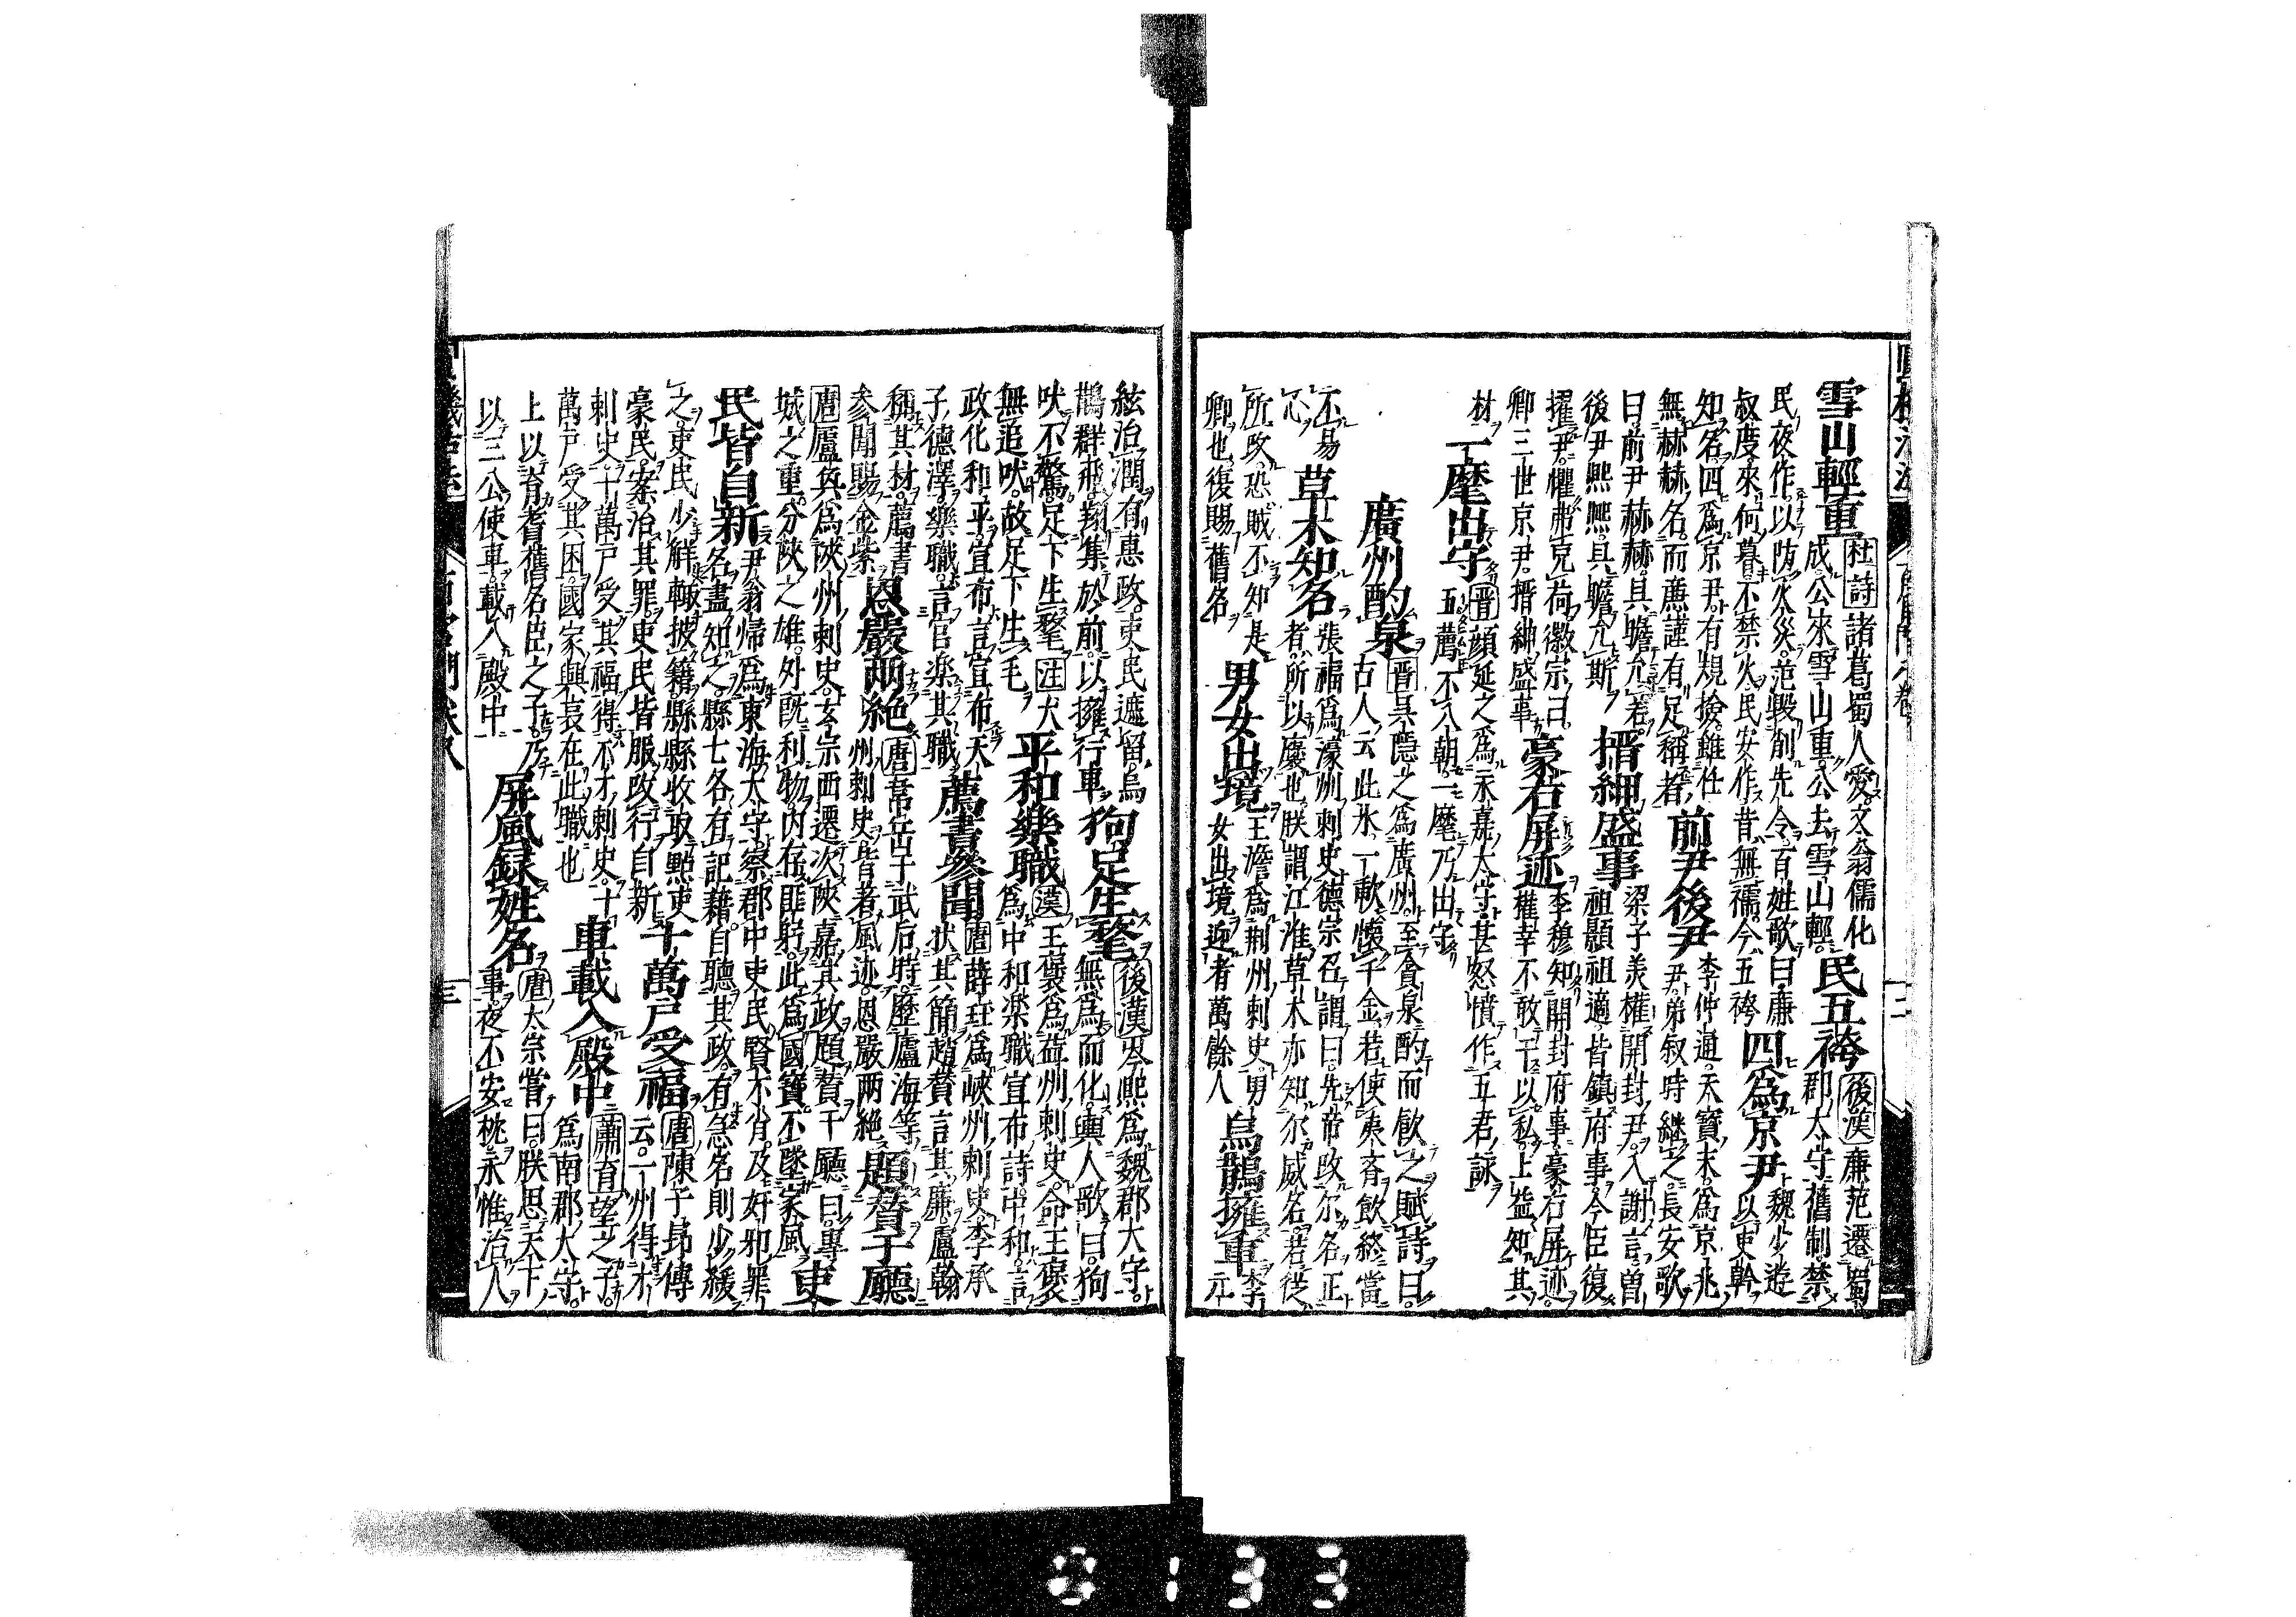 雪山輕重
杜詩諸葛蜀人愛文翁儒化
成公來雪山重公去雪山輕
民五袴
後漢廉范遷蜀
郡太守舊制禁
民夜作以防火災范毀削先令百姓歌曰廉
叔度來何暮不禁火民安作昔無襦今五袴
四爲京尹
魏少遊
以吏幹
知名四爲京尹有規撿雖任
無赫赫名而廉謹有足稱者
前尹後尹
李仲通天寶末爲京兆
尹弟叔時継之長安歌
曰前尹赫赫具瞻允若
後尹熈熈具瞻允斯
搢紳盛事
梁子羙權開封尹入謝言曽
祖顥祖適皆鎮府事今臣復
擢尹懼弗克荷徽宗曰
卿三世京尹搢紳盛事
豪右屏迹
李穆知開封府事豪右屏迹
權幸不敢干以私上益知其
材
一麾出守
晋顔延之爲永嘉太守甚怒憤作五君詠
五薦不入朝一麾乃出守
廣州酌泉
晋吴隠之爲廣州至貪泉酌而飲之賦詩曰
古人云此水一歃懷千金若使夷斉飲終當
不易
心
草木知名
張福爲濠洲刺史德宗召謂曰先帝改尓名正
者所以襃也朕謂江淮草木亦知尓威名若從
所改恐賊不知是
卿也復賜舊名
男女出境
王澹爲荆州刺史男
女出境迎者萬餘人
烏鵲擁車
李
元
絃治潤有惠政吏民遮留烏
鵲群飛翔集於前以擁行車
狗足生氂
後漢岑熙爲魏郡大守
無爲而化輿人歌曰狗
吠不驚足下生氂注犬
無追吠故足下生毛
平和樂職
漢王襃爲益州刺史命王襃
爲中和楽職宣布詩中和言
政化和平宣布言宣布天
子德澤樂職言官楽其職
薦書參聞
唐薛玨爲峽州刺史李承
状其簡趙賛言其廉盧翰
稱其材薦書
參聞賜金紫
恩嚴两絶
唐常岳子武后時歴廬海等
州刺史皆者風迹恩嚴两絶
題賛于廳
唐盧奐爲陜州刺史玄宗西還次陜嘉其政題賛干廳曰專
城之重分陜之雄外旣利物内存匪躬此爲國寶不墜家風
吏民皆自新
尹翁帰爲東海大守察郡中吏民賢不肖及奸邪罪
名盡知之縣七各有記藉自聽其政有急名則少緩
之吏民少解輙披籍縣縣收取黠吏
豪民案治其罪吏民皆服改行自新
十萬戸受福
唐陳子昻傳
云一州得才
刺史十萬戸受其福得不才刺史十
萬戸受其困國家興衰在此職也
車載入殿中
蕭育望之子
爲南郡大守
上以育耆舊名臣之子乃
以三公使車載入殿中
屏風録姓名
唐太宗嘗曰朕思天下
事夜不安桃永惟治人
三
0133